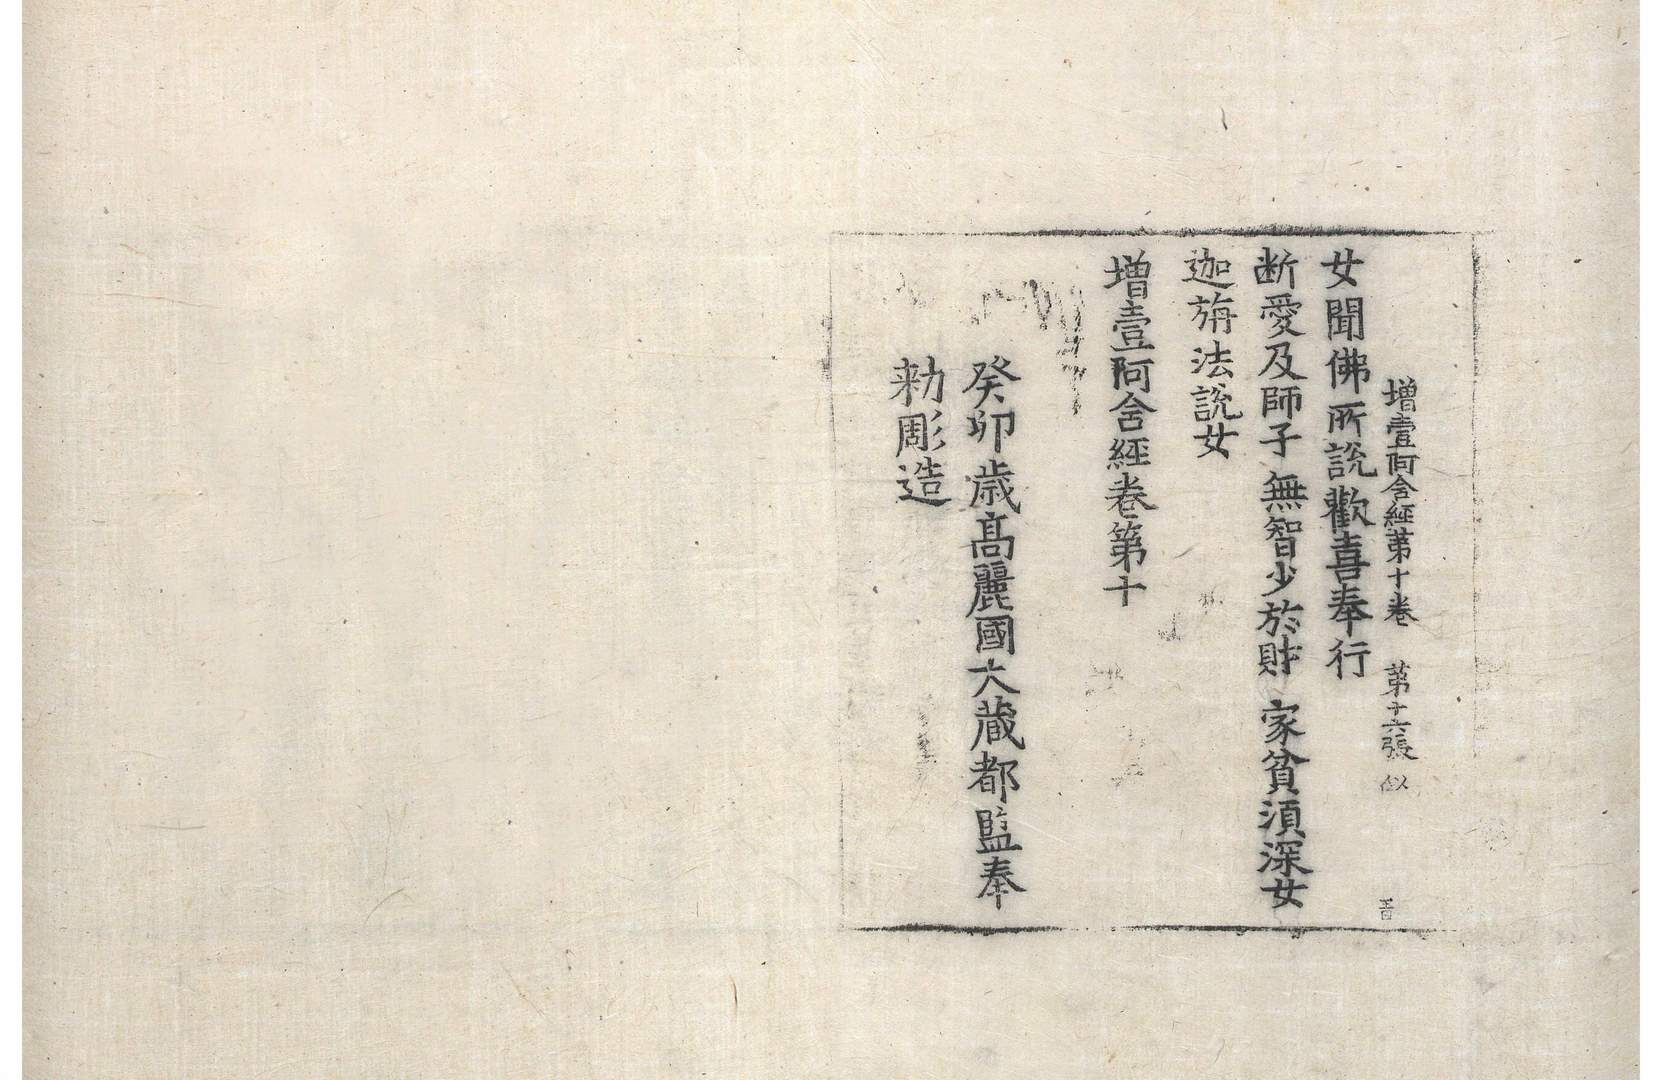 增壹阿含經第十卷 第十六張 似
女聞佛所說歡喜奉行
断愛及師子 無智少於財 家貧須深女
迦旃法說女
增壹阿含經卷第十
癸卯歲髙麗國大藏都監奉
勑彫造